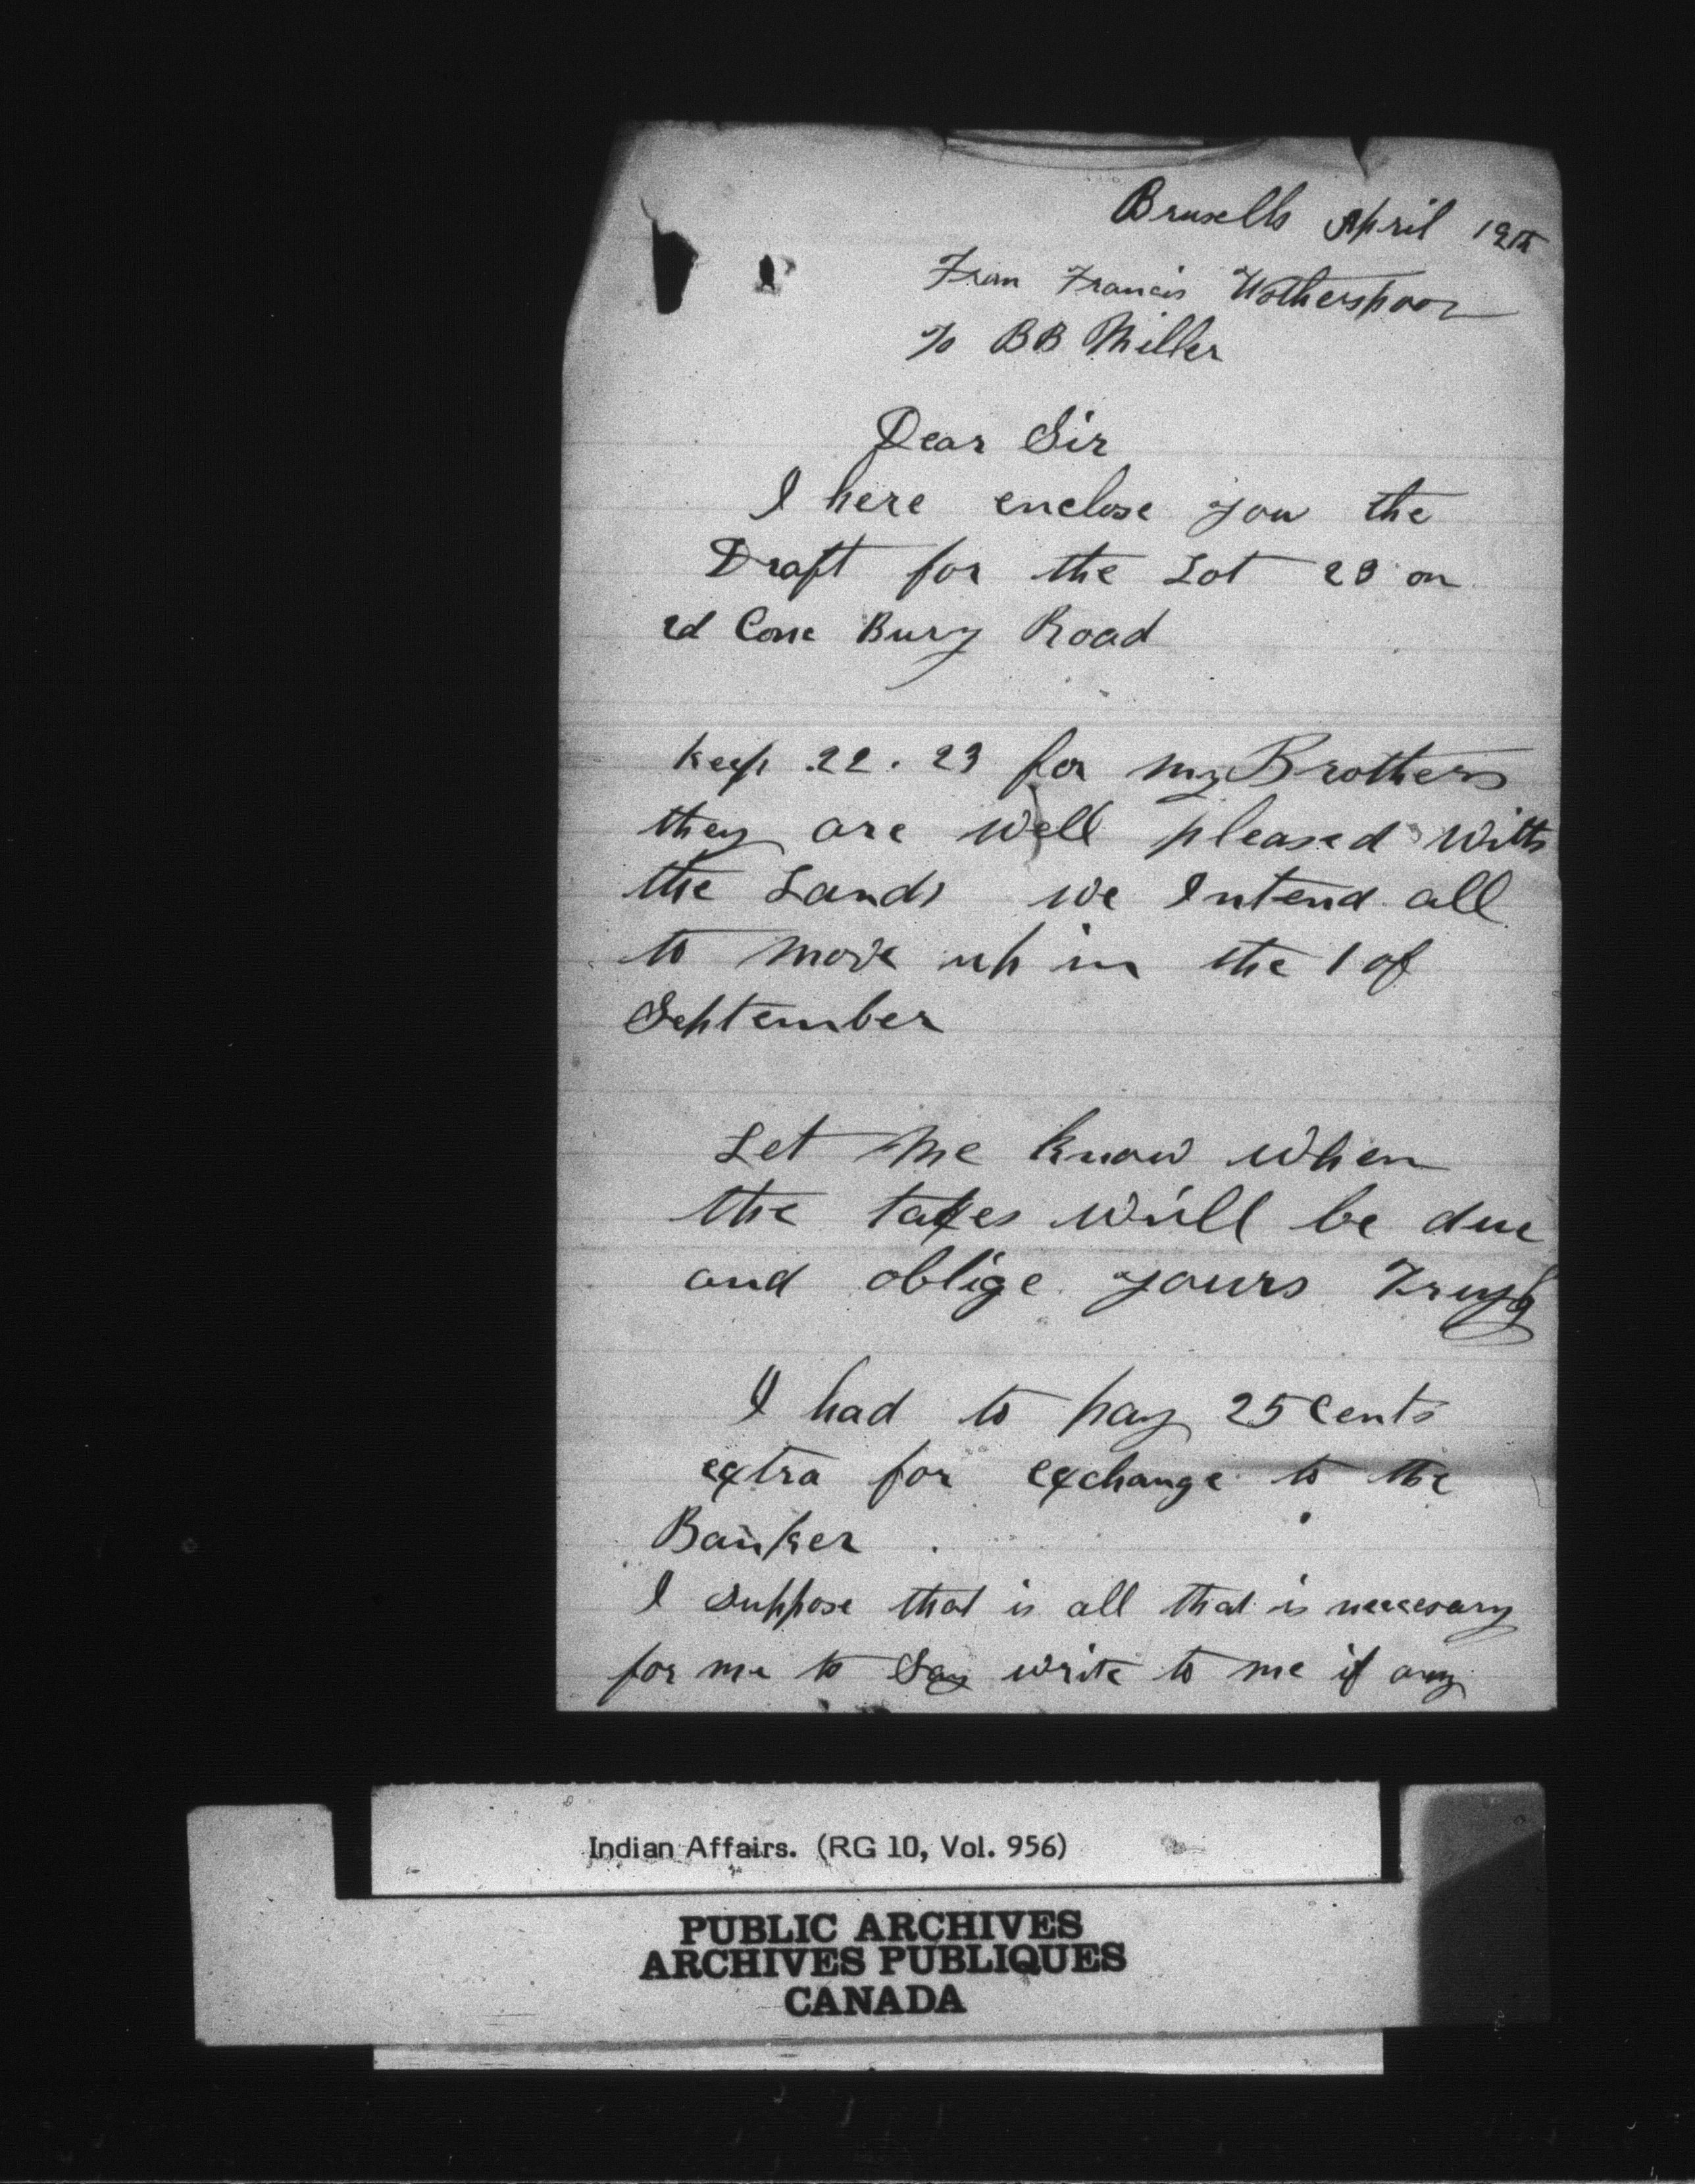 Brusells April 19th
From Francis Wotherspoon
To BB Miller
Dear Sir
I here enclose you the
Draft for the Lot 23 on
2d Conc Bury Road
Keep 22. 23 for my Brothers
they are well pleased with
the Lands we Intend all
to move up in the 1 of
September
Let Me know when
the taxes will be due
and oblige yours Truly
I had to pay 25 Cents
extra for exchange to the
Banker .
I suppose that is all that is necesary
for me to Say write to me if any
Indian Affairs. (RG 10, Vol. 956)
PUBLIC ARCHIVES
ARCHIVES PUBLIQUES
CANADA